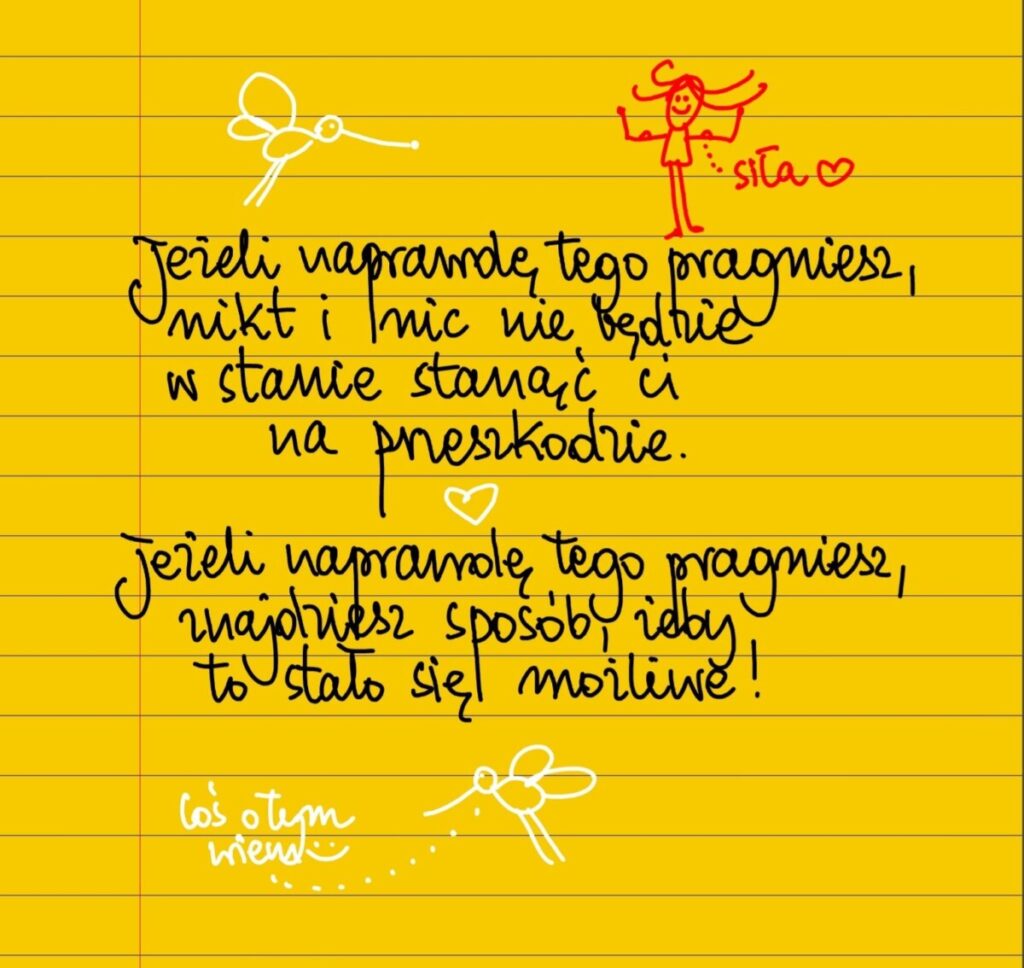 siła
Jeżeli naprawdę tego pragniesz,
nikt i nic nie będzie
w stanie stanąć ci
na przeszkodzie.
Jeżeli naprawdę tego pragniesz,
znajdziesz sposób, żeby
to stało się możliwe!
Coś o tym
wiem